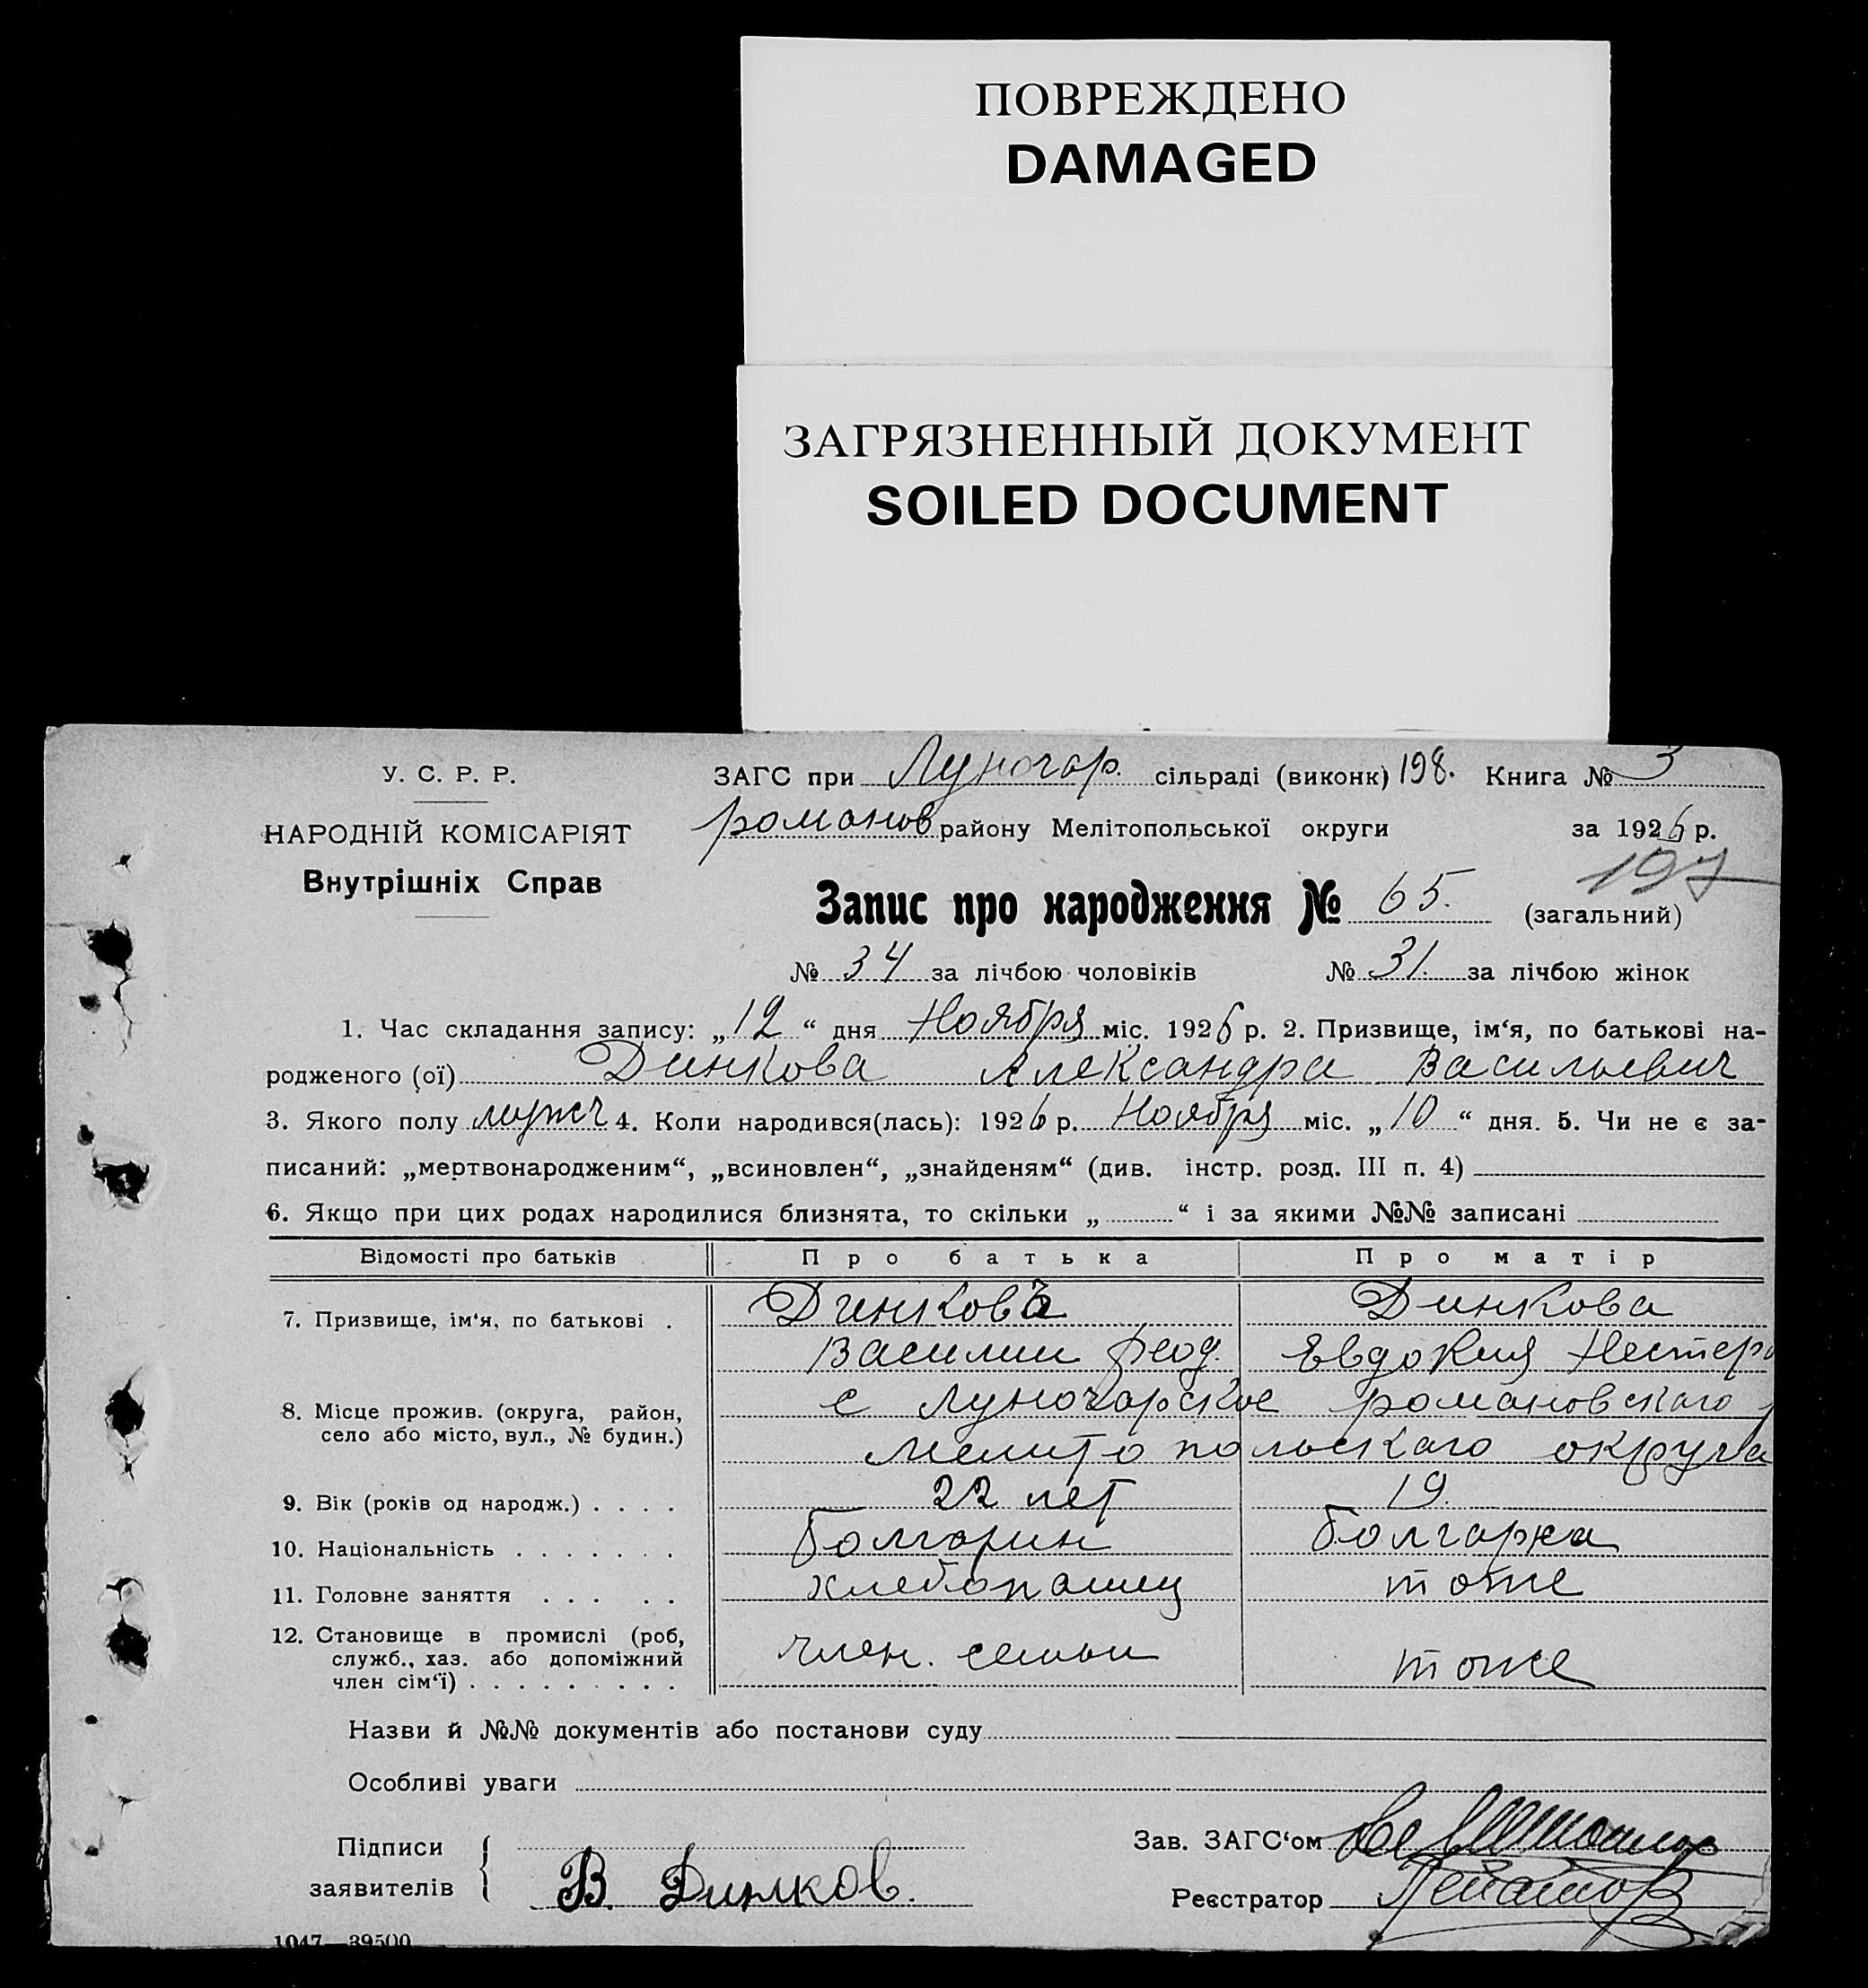 ПОВРЕЖДЕНО
DAMAGED
ЗАГРЯЗНЕННЫЙ ДОКУМЕНТ
SOILED DOCUMENT
У. С. Р. Р.
НАРОДНІЙ КОМІСАРІЯТ
Внутрішніх Справ
ЗАГС при Луночар. сільраді (виконк) 198. Книга № 3
романов району Мелітопольської округи за 1926 р.
197
Запис про народження № 65. (загальний)
№ 34 за лічбою чоловіків № 31. за лічбою жінок
1. Час складання запису: „12“ дня Ноября міс. 1926 р. 2. Призвище, ім‘я, по батькові на-
родженого (ої) Динкова Александра Васильевич
3. Якого полу мужч 4. Коли народився(лась): 1926 р. Ноября міс. „10“ дня. 5. Чи не є за-
писаний: „мертвонародженим“, „всиновлен“, „знайденям“ (див. інстр. розд. III п. 4)
6. Якщо при цих родах народилися близнята, то скільки „ “ і за якими №№ записані
Відомості про батьків Про батька Про матір
7. Призвище, ім‘я, по батькові . Динковъ Динкова
Василии Феод. Евдокия Нестеро
8. Місце прожив. (округа, район, село або місто, вул., № будин.) с Луночарское романовскаго
Мелитопольскаго округа
9. Вік (років од народж.) . . . . 22 лет 19.
10. Національність . . . . . . . болгарин болгарка
11. Головне заняття . . . . . хлебопашец тоже
12. Становище в промислі (роб, служб., хаз. або допоміжний член сім‘ї) . . . . . . . . . член. семьи тоже
Назви й №№ документів або постанови суду
Особливі уваги
Підписи
заявителів
В. Динков.
Зав. ЗАГС‘ом
Реєстратор
1047—39500